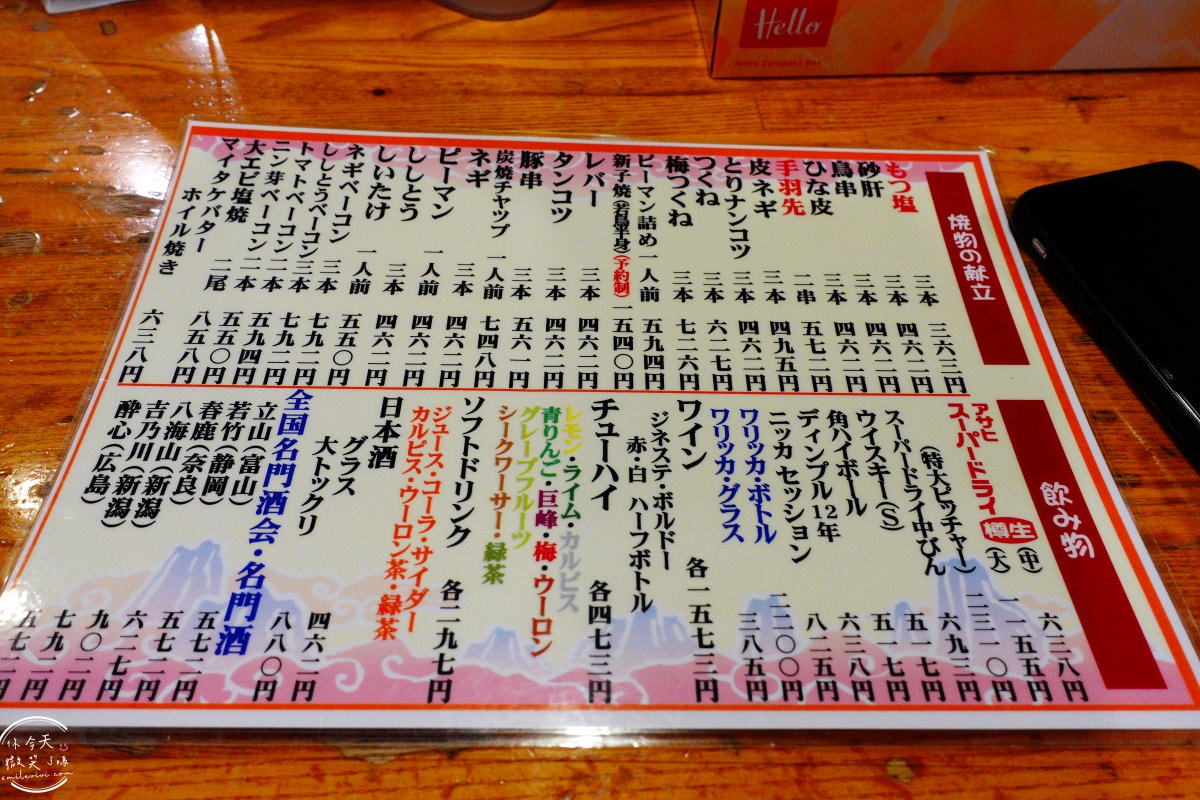 焼物の献立
もつ塩 三本 三六三円
砂肝 三本 四六二円
鳥串 三本 四六二円
ひな皮 三本 四六二円
手羽先 二串 五七二円
皮ネギ 三本 四九五円
とりナンコツ 三本 四六二円
つくね 三本 六二七円
梅つくね 三本 七二六円
ピーマン詰め 一人前 五九四円
新子焼(若鳥半身)(予約制) 一五四〇円
レバー 三本 四六二円
タンコツ 三本 四六二円
豚串 三本 五六一円
炭焼チャップ 一人前 七四八円
ネギ 三本 四六二円
ピーマン 一人前 四六二円
ししとう 三本 四六二円
しいたけ 一人前 五五〇円
ネギベーコン 三本 七九二円
ししとうベーコン 三本 七九二円
トマトベーコン 二本 五九四円
ニン芽ベーコン 二本 五五〇円
大エビ塩焼 二尾 八五八円
マイタケバター
ホイル焼き 六三八円
飲み物
アサヒ
スーパードライ 樽生 (中) 六三八円
(大) 一一五五円
(特大ピッチャー) 二三一〇円
スーパードライ中びん 六九三円
ウイスキー(S) 五一七円
角ハイボール 五一七円
ディンプル12年 六三八円
ニッカ セッション 八二五円
ワリッカ・ボトル 二二〇〇円
ワリッカ・グラス 三八五円
ワイン 各一五七三円
ジネステ・ボルドー
赤・白 ハーフボトル
チューハイ 各四七三円
レモン・ライム・カルピス
青りんご・巨峰・梅・ウーロン
グレープフルーツ
シークワーサー・緑茶
ソフトドリンク 各二九七円
ジュース・コーラ・サイダー
カルピス・ウーロン茶・緑茶
日本酒
グラス 四六二円
大トックリ 八八〇円
全国名門酒会・名門酒
立山(富山) 五七二円
若竹(静岡) 五七二円
春鹿(奈良) 六二七円
八海山(新潟) 九〇二円
吉乃川(新潟) 七九二円
酔心(広島) 五七二円
Hello
Hello Compact Box
你今天
微笑了嗎
smilevivi.com